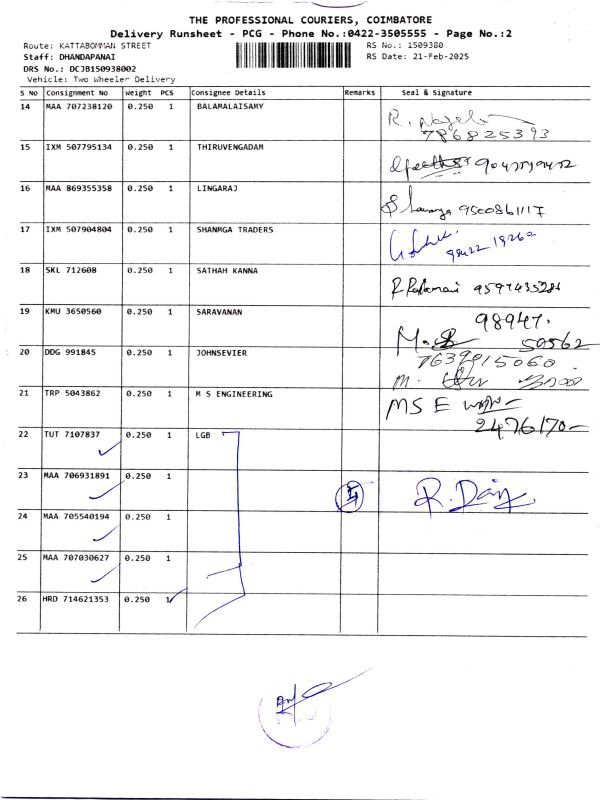 THE PROFESSIONAL COURIERS, COIMBATORE
Delivery Runsheet - PCG - Phone No.:0422-3505555 - Page No.:2
Route: KATTABOMMAN STREET RS No.: 1509380
Staff: DHANDAPANAI RS Date: 21-Feb-2025
DRS No.: DCJB150938002
Vehicle: Two Wheeler Delivery
S No Consignment No Weight PCS Consignee Details Remarks Seal & Signature
14 MAA 707238120 0.250 1 BALAMALAISAMY
7868253 93
15 IXM 507795134 0.250 1 THIRUVENGADAM
16 MAA 869355358 0.250 1 LINGARAJ
9500861117
17 IXM 507904804 0.250 1 SHANMGA TRADERS
18 SKL 712608 0.250 1 SATHAH KANNA
9597435286
19 KMU 3650560 0.250 1 SARAVANAN 98947.
50562
20 DDG 991845 0.250 1 JOHNSEVIER 7639815060.
21 TRP 5043862 0.250 1 M S ENGINEERING MSE
2476170-
22 TUT 7107837 0.250 1 LGB
23 MAA 706931891 0.250 1
24 MAA 705540194 0.250 1
25 MAA 707030627 0.250 1
26 HRD 714621353 0.250 1